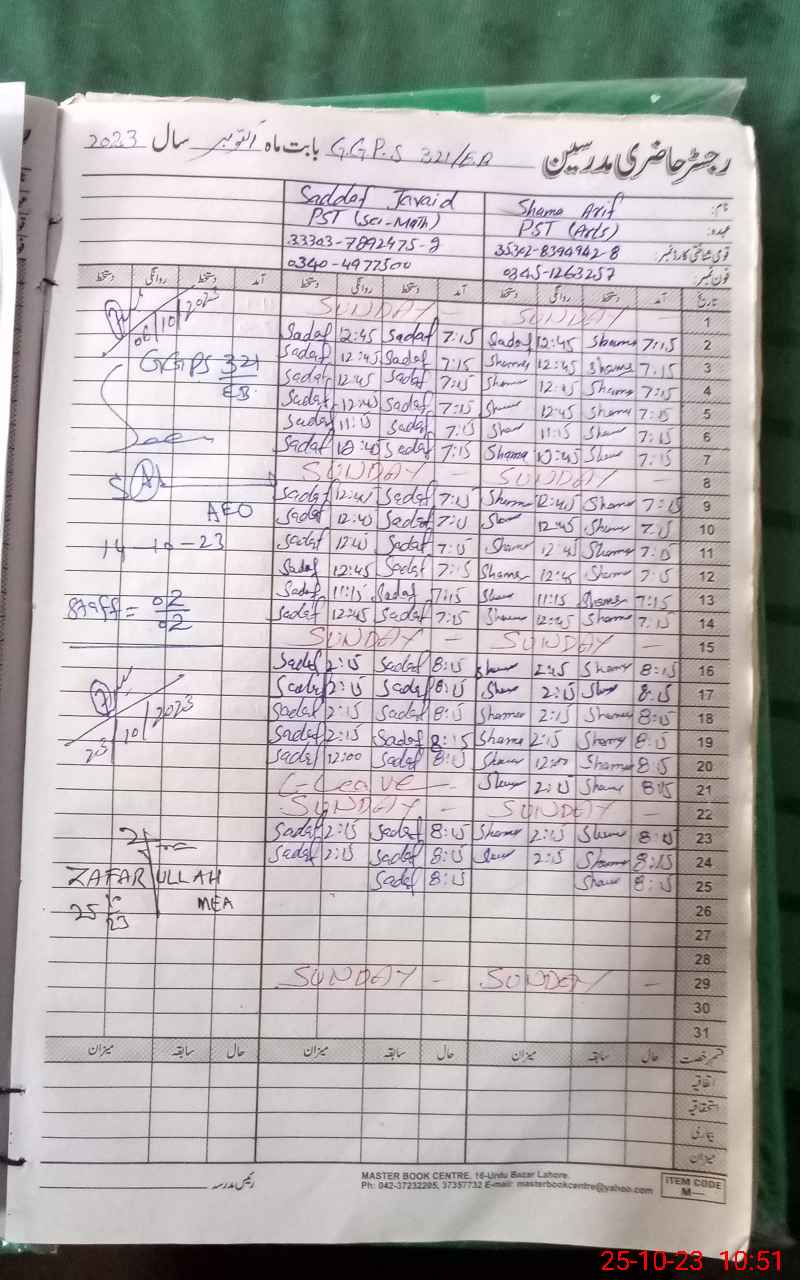 رجسٹر حاضری مدرسین G.G.P.S 321/EB بابت ماہ اکتوبر سال 2023
نام: Shama Arif Saddaf Javaid
عہدہ: PST (Arts) PST (Sci-Math)
قومی شناختی کارڈ نمبر: 35302-8394942-8 33303-7892475-2
فون نمبر: 0345-1263257 0340-4977500
تاریخ آمد دستخط روانگی دستخط آمد دستخط روانگی دستخط آمد دستخط روانگی دستخط
1 SUNDAY — SUNDAY —
2 7:15 Shama 12:45 Sadaf 7:15 Sadaf 12:45 Sadaf
3 7:15 Shama 12:45 Shama 7:15 Sadaf 12:45 Sadaf
4 7:15 Shama 12:45 Shama 7:15 Sadaf 12:45 Sadaf
5 7:15 Shama 12:45 Shama 7:15 Sadaf 12:45 Sadaf
6 7:15 Shama 11:15 Shama 7:15 Sadaf 11:15 Sadaf
7 7:15 Shama 12:45 Shama 7:15 Sadaf 12:45 Sadaf
8 SUNDAY — SUNDAY —
9 7:15 Shama 12:45 Shama 7:15 Sadaf 12:45 Sadaf
10 7:15 Shama 12:45 Shama 7:15 Sadaf 12:45 Sadaf
11 7:15 Shama 12:45 Shama 7:15 Sadaf 12:45 Sadaf
12 7:15 Shama 12:45 Shama 7:15 Sadaf 12:45 Sadaf
13 7:15 Shama 11:15 Shama 7:15 Sadaf 11:15 Sadaf
14 7:15 Shama 12:45 Shama 7:15 Sadaf 12:45 Sadaf
15 SUNDAY — SUNDAY —
16 8:15 Shama 2:15 Shama 8:15 Sadaf 2:15 Sadaf
17 8:15 Shama 2:15 Shama 8:15 Sadaf 2:15 Sadaf
18 8:15 Shama 2:15 Shama 8:15 Sadaf 2:15 Sadaf
19 8:15 Shama 2:15 Shama 8:15 Sadaf 2:15 Sadaf
20 8:15 Shama 12:00 Shama 8:15 Sadaf 12:00 Sadaf
21 8:15 Shama 2:15 Shama C-Leave
22 SUNDAY — SUNDAY —
23 8:15 Shama 2:15 Shama 8:15 Sadaf 2:15 Sadaf
24 8:15 Shama 2:15 Shama 8:15 Sadaf 2:15 Sadaf
25 8:15 Shama 8:15 Sadaf
26
27
28
29 SUNDAY — SUNDAY —
30
31
06/10/2023
GGPS 321/EB
AEO
14-10-23
Staff = 02/02
23/10/2023
ZAFAR ULLAH
MEA
25/10/23
قسم رخصت حال سابقہ میزان حال سابقہ میزان حال سابقہ میزان
اتفاقیہ
استحقاقیہ
بیماری
میزان
رئیس مدرسہ
MASTER BOOK CENTRE, 16-Urdu Bazar Lahore.
Ph: 042-37232205, 37357732 E-mail: masterbookcentre@yahoo.com
ITEM CODE
M—
25-10-23 10:51